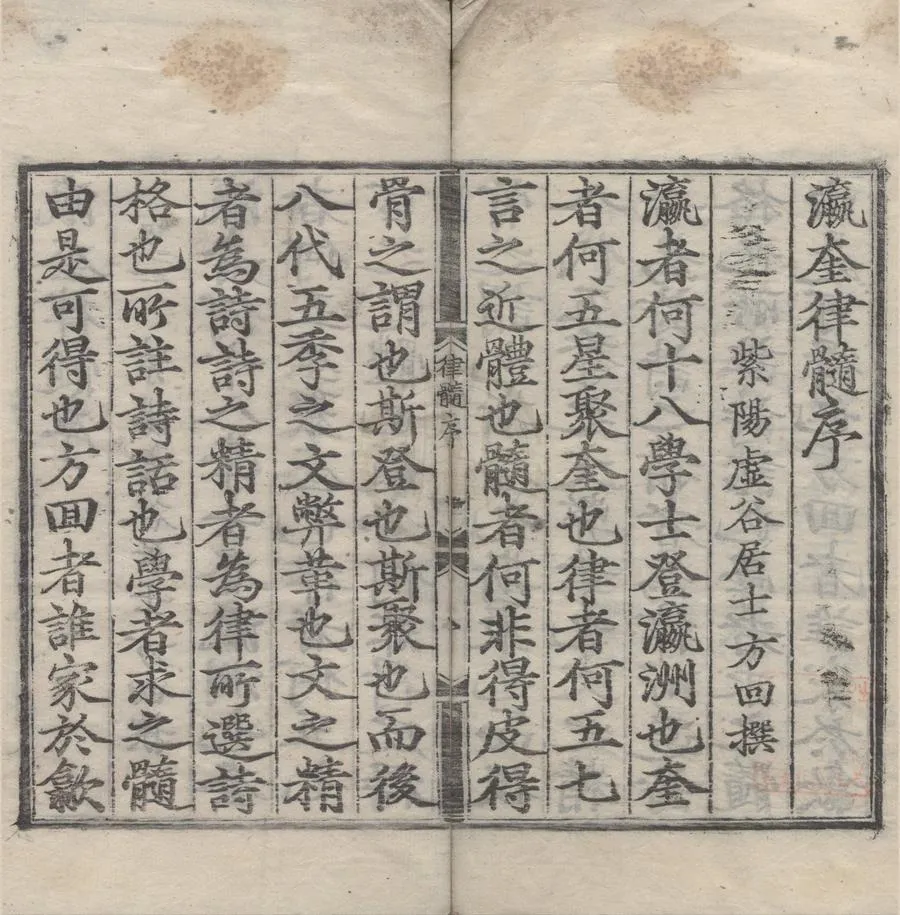 瀛奎律髓序
紫陽虛谷居士方回撰
瀛者何十八學士登瀛洲也奎
者何五星聚奎也律者何五七
言之近體也髓者何非得皮得
律髓序
骨之謂也斯登也斯聚也而後
八代五季之文弊革也文之精
者為詩詩之精者為律所選詩
格也所註詩話也學者求之髓
由是可得也方囬者誰家於歙